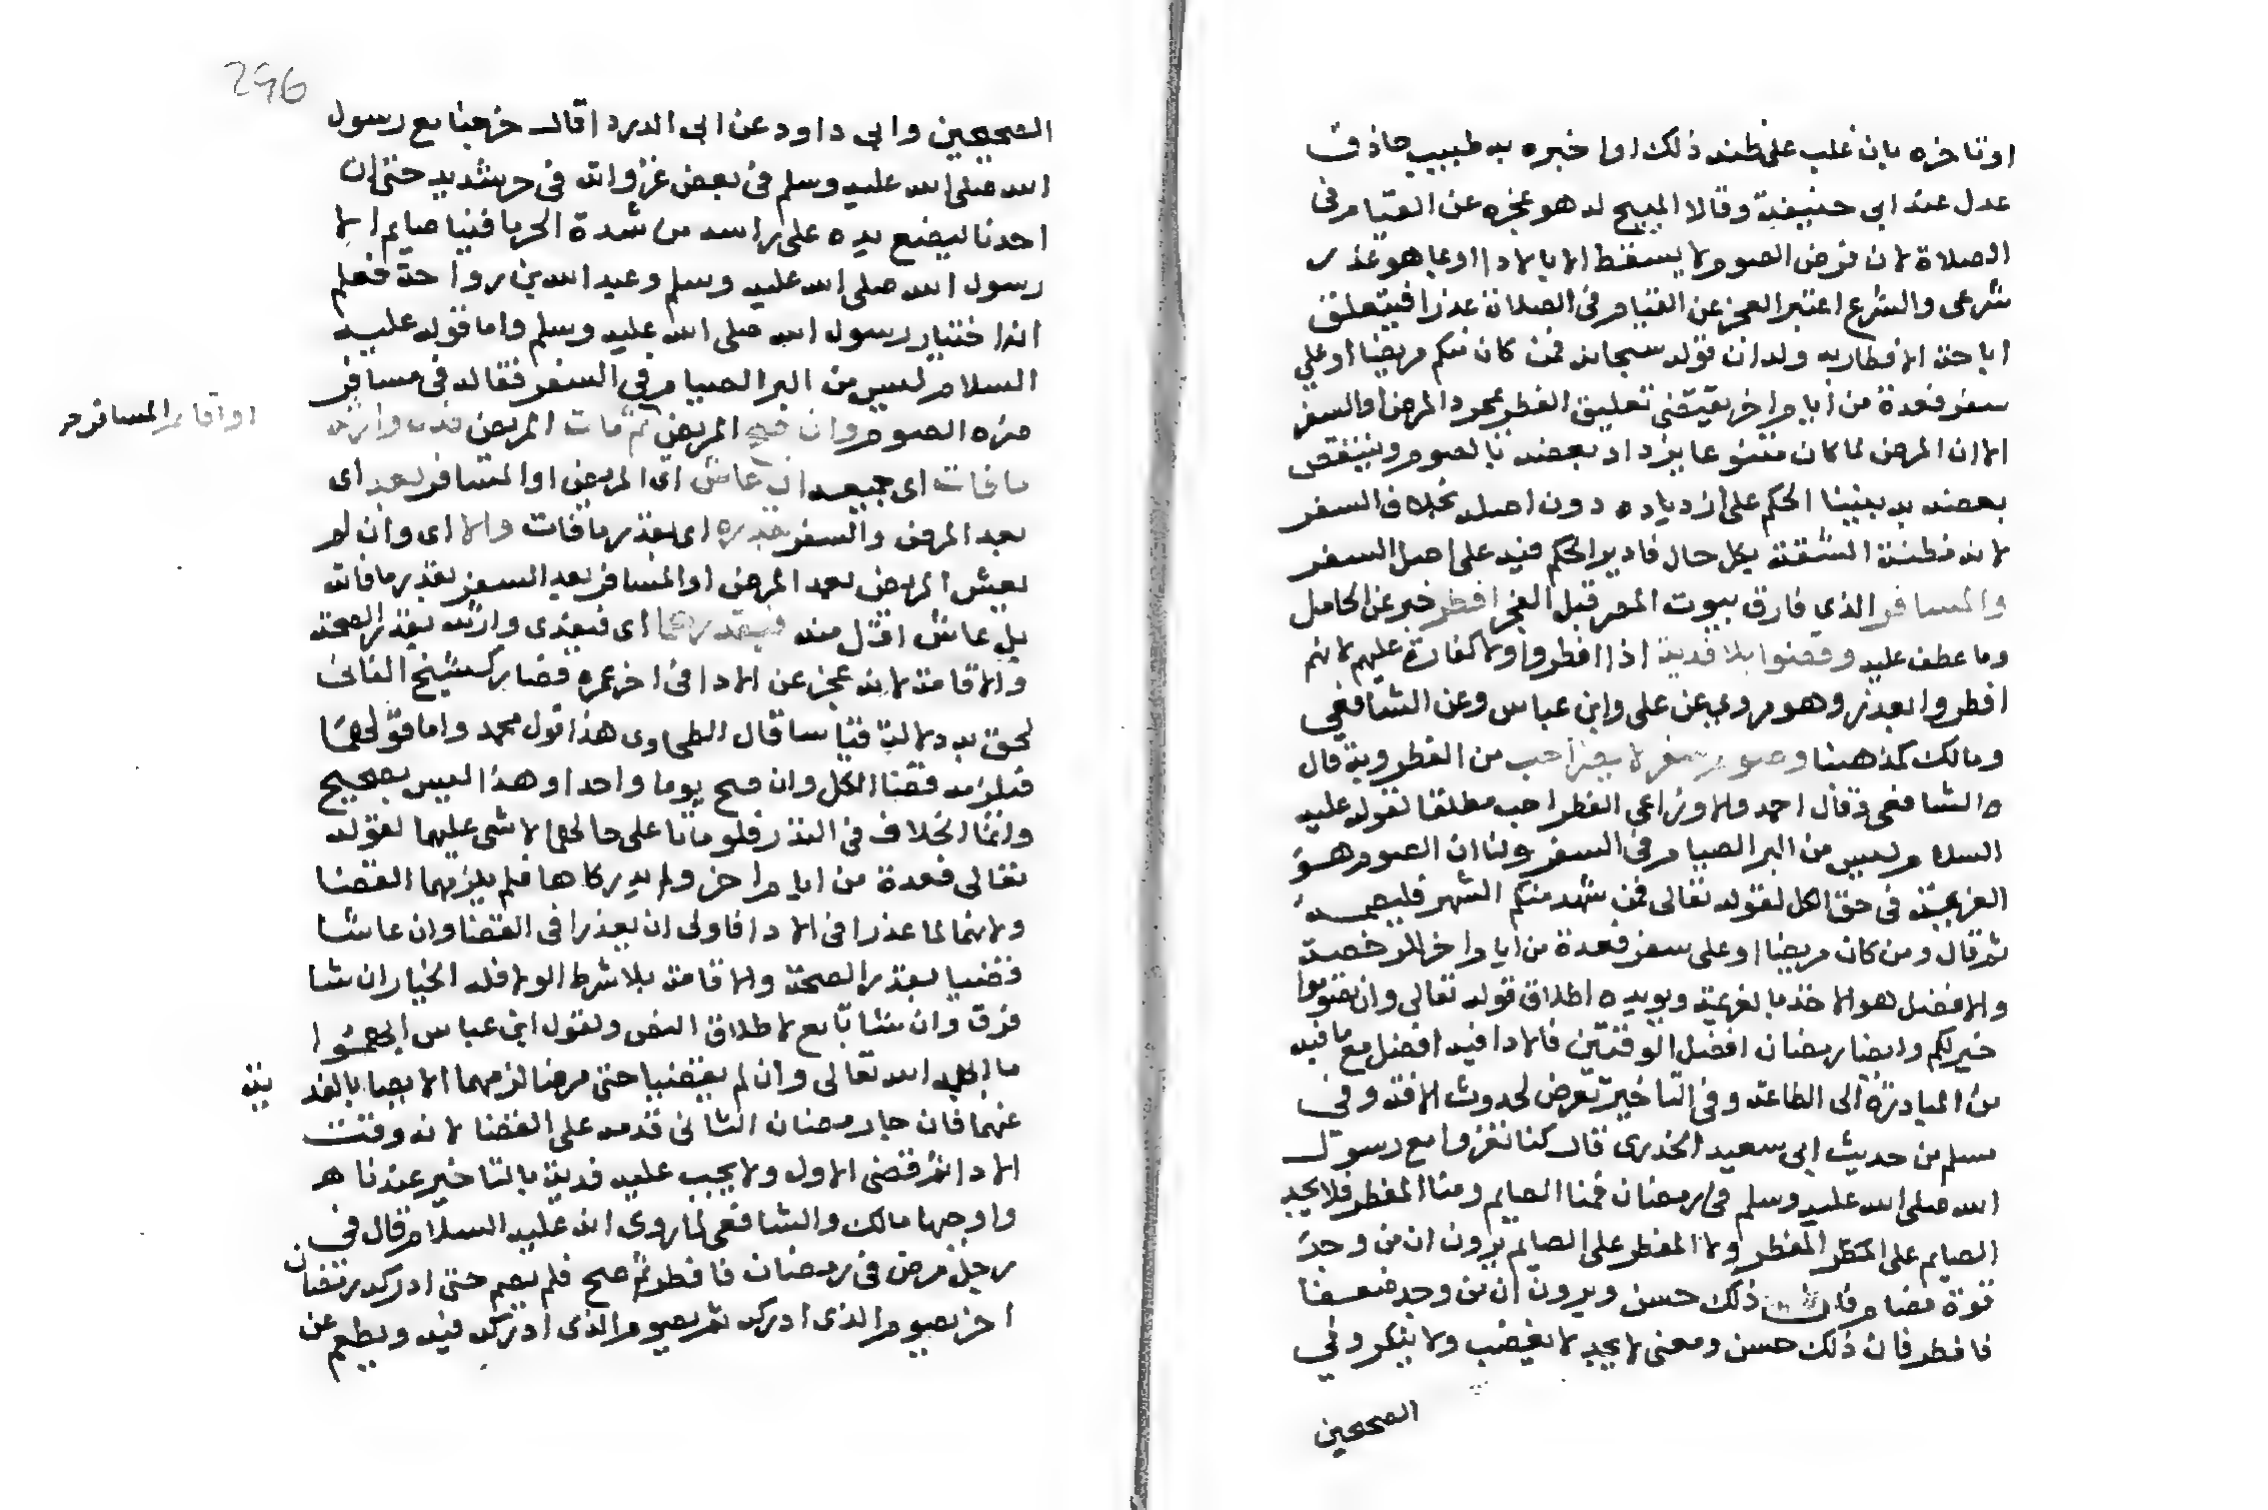 او تاخره بان غلب على ظنه ذلك او اخبره به طبيب حاذق
عدل عند ابى حنيفة وقالا المبيح له هو عجزه عن القيام فى
الصلاة لان فرض الصوم لا يسقط الا بالاداا وبما هو عذر
شرعى والشرع اعتبر العجز عن القيام فى الصلاة عذرا فيتعلق
اباحة الافطار به ولنا ان قوله سبحانه فمن كان منكم مريضا او على
سفر فعدة من أيام اخر يقتضى تعليق الفطر بمجرد المرض والسفر
الا ان المرض لما كان متنوعا يزداد بعضه بالصوم وينتقص
بعضه به بنينا الحكم على ازدياده دون اصله بخلاف السفر
لانه مظنة المشقة بكل حال فادير الحكم فيه على اصل السفر
والمسافر الذى فارق بيوت المصر قبل الفجر افطر خبر عن الحامل
وما عطف عليه وقضوا بلا فدية اذا افطروا ولا كفارة عليهم لانهم
افطروا بعذر وهو مروى عن على وابن عباس وعن الشافعى
ومالك كمذهبنا وصوم سفر لا يضر احب من الفطر وبه قال
الشافعى وقال احمد والاوزاعى الفطر احب مطلقا لقوله عليه
السلام ليس من البر الصيام فى السفر ولنا ان الصوم هو
العزيمة فى حق الكل لقوله تعالى فمن شهد منكم الشهر فليصمه
ثم قال ومن كان مريضا او على سفر فعدة من ايام اخر للرخصة
والافضل هو الاخذ بالعزيمة ويويده اطلاق قوله تعالى وان تصوموا
خير لكم وايضا رمضان افضل الوقتين فالادا فيه افضل مع ما فيه
من المبادرة الى الطاعة وفى التاخير تعرض لحدوث الافة وفى
مسلم من حديث ابى سعيد الخدرى قال كنا نغزوا مع رسول
الله صلى الله عليه وسلم فى رمضان فمنا الصايم ومنا المفطر فلا يجد
الصايم على المفطر ولا المفطر على الصايم يرون ان من وجد
قوة فصام فان ذلك حسن ويرون ان من وجد ضعفا
فافطر فان ذلك حسن ومعنى لا يجد لا يغضب ولا ينكر وفى
الصحيحين
296
الصحيحين وابى داود عن ابى الدردا قال خرجنا مع رسول
الله صلى الله عليه وسلم فى بعض غزواته فى حر شديد حتى ان
احدنا ليضع يده على راسه من شدة الحر ما فينا صايم الا
رسول الله صلى الله عليه وسلم وعبد الله بن رواحة فعلم
انه اختيار رسول الله صلى الله عليه وسلم واما قوله عليه
السلام ليس من البر الصيام فى السفر فقاله فى مسافر
ضره الصوم وان صح المريض ثم مات المريض فدى وارثه
او اقام المسافر
ما فات اى جميعه ان عاش اى المريض او المسافر بعد اى
بعد المرض والسفر بقدره اى بقدر ما فات والا اى وان لم
يعش المريض بعد المرض او المسافر بعد السفر بقدر ما فات
بل عاش اقل منه فبقدرهما اى فيفدى وارثه بقدر الصحة
والاقامة لانه عجز عن الادا فى اخر عمره فصار كشيخ الفانى
لحق به دلالة لا قياسا قال الطحاوى هذا قول محمد واما قولهما
فيلزمه قضا الكل وان صح يوما واحدا وهذا ليس بصحيح
وانما الخلاف فى النذر فلو ماتا على حالهما لا شى عليهما لقوله
تعالى فعدة من ايام اخر ولم يدركاها فلم يلزمهما القضا
ولانهما لما عذرا فى الادا فاولى ان يعذرا فى القضا وان عاشا
قضيا بقدر الصحة والاقامة بلا شرط الولا فله الخيار ان شا
فرق وان شا تابع لاطلاق النص ولقول ابن عباس ابهموا
ما ابهم الله تعالى وان لم يقضيا حتى مرضا لزمهما الايصا بالفدية
عنهما فان جا رمضان الثانى قدمه على القضا لانه وقت
الادا ثم قضى الاول ولا يجب عليه فدية بالتاخير عندنا
واوجبها مالك والشافعى لما روى انه عليه السلام قال فى
رجل مرض فى رمضان فافطر ثم صح فلم يصم حتى ادركه رمضان
اخر يصوم الذى ادركه ثم يصوم الذى افطر فيه ويطعم عن